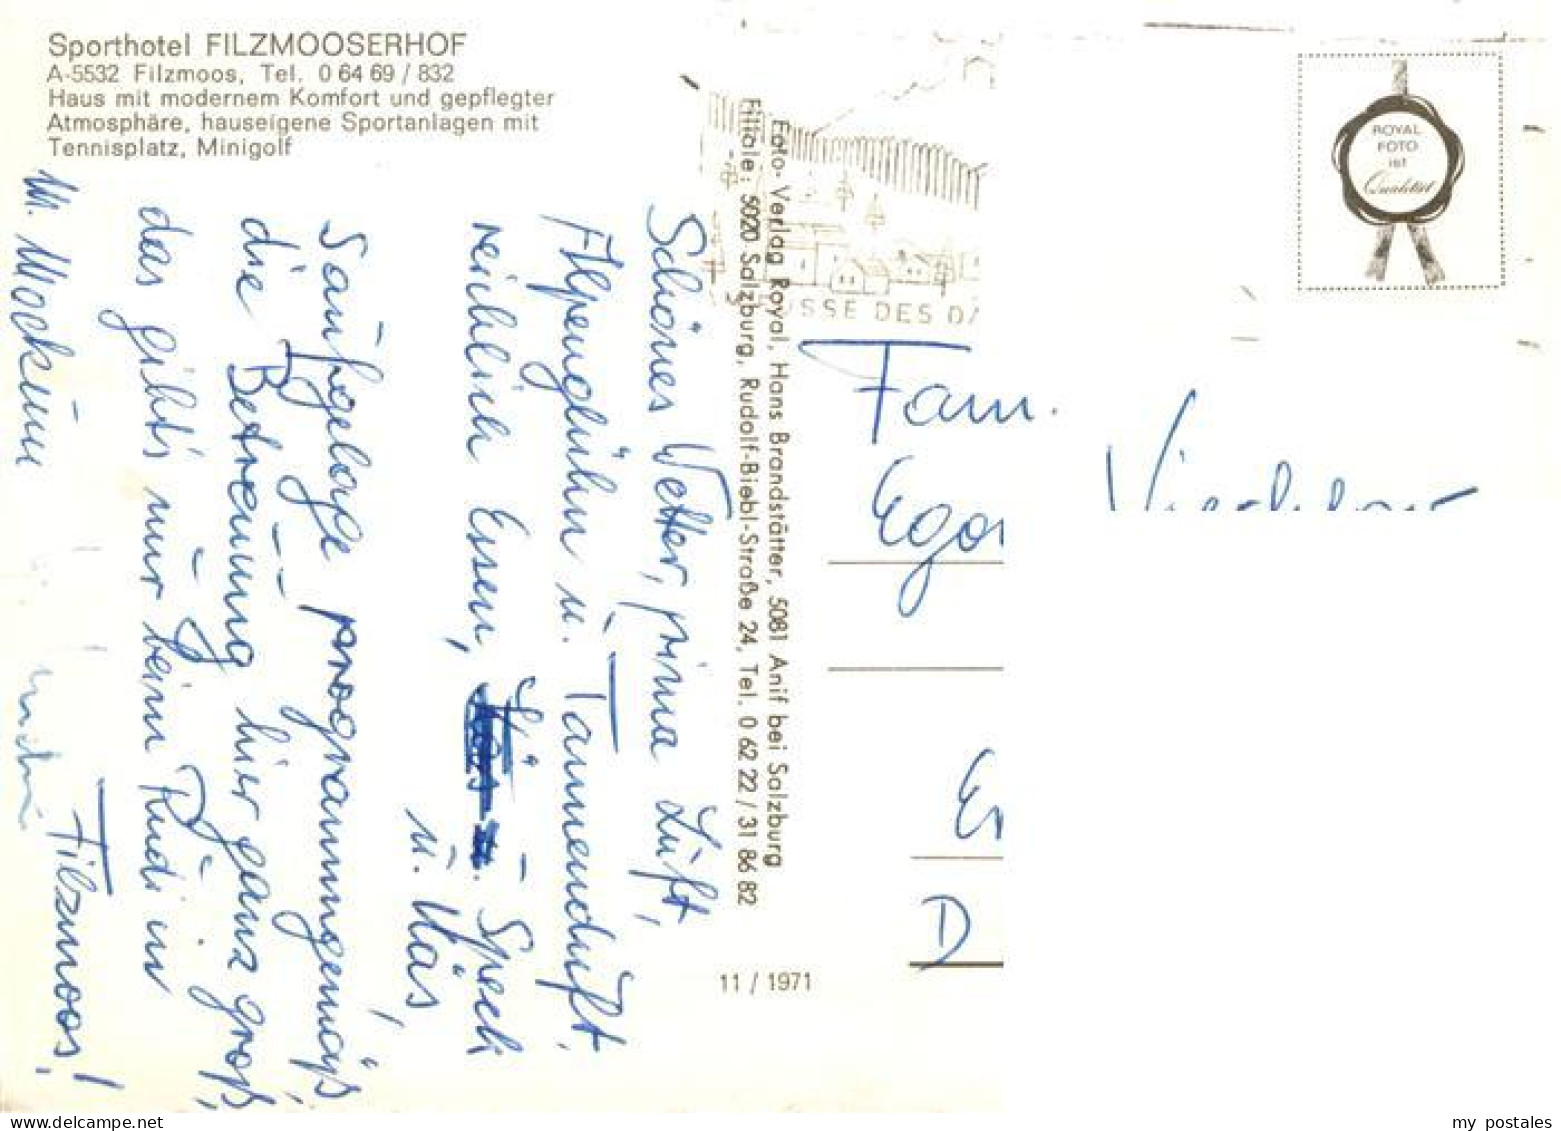 Sporthotel FILZMOOSERHOF
A-5532 Filzmoos, Tel. 0 64 69 / 832
Haus mit modernem Komfort und gepflegter
Atmosphäre, hauseigene Sportanlagen mit
Tennisplatz, Minigolf
Schönes Wetter, prima Luft,
Alpenglühn u. Tannenduft,
reichlich Essen, Speck
u. Käs,
Saufgelage programmgemäß,
die Betreuung hier ganz groß,
das gibt's nur beim Rudi in
Filzmoos!
Foto-Verlag Royal, Hans Brandstätter, 5081 Anif bei Salzburg
Filiale: 5020 Salzburg, Rudolf-Biebl-Straße 24, Tel. 0 62 22 / 31 86 82
11 / 1971
SSE DES DA
ROYAL
FOTO
ist
Qualität
Fam.
Egon
D
my postales